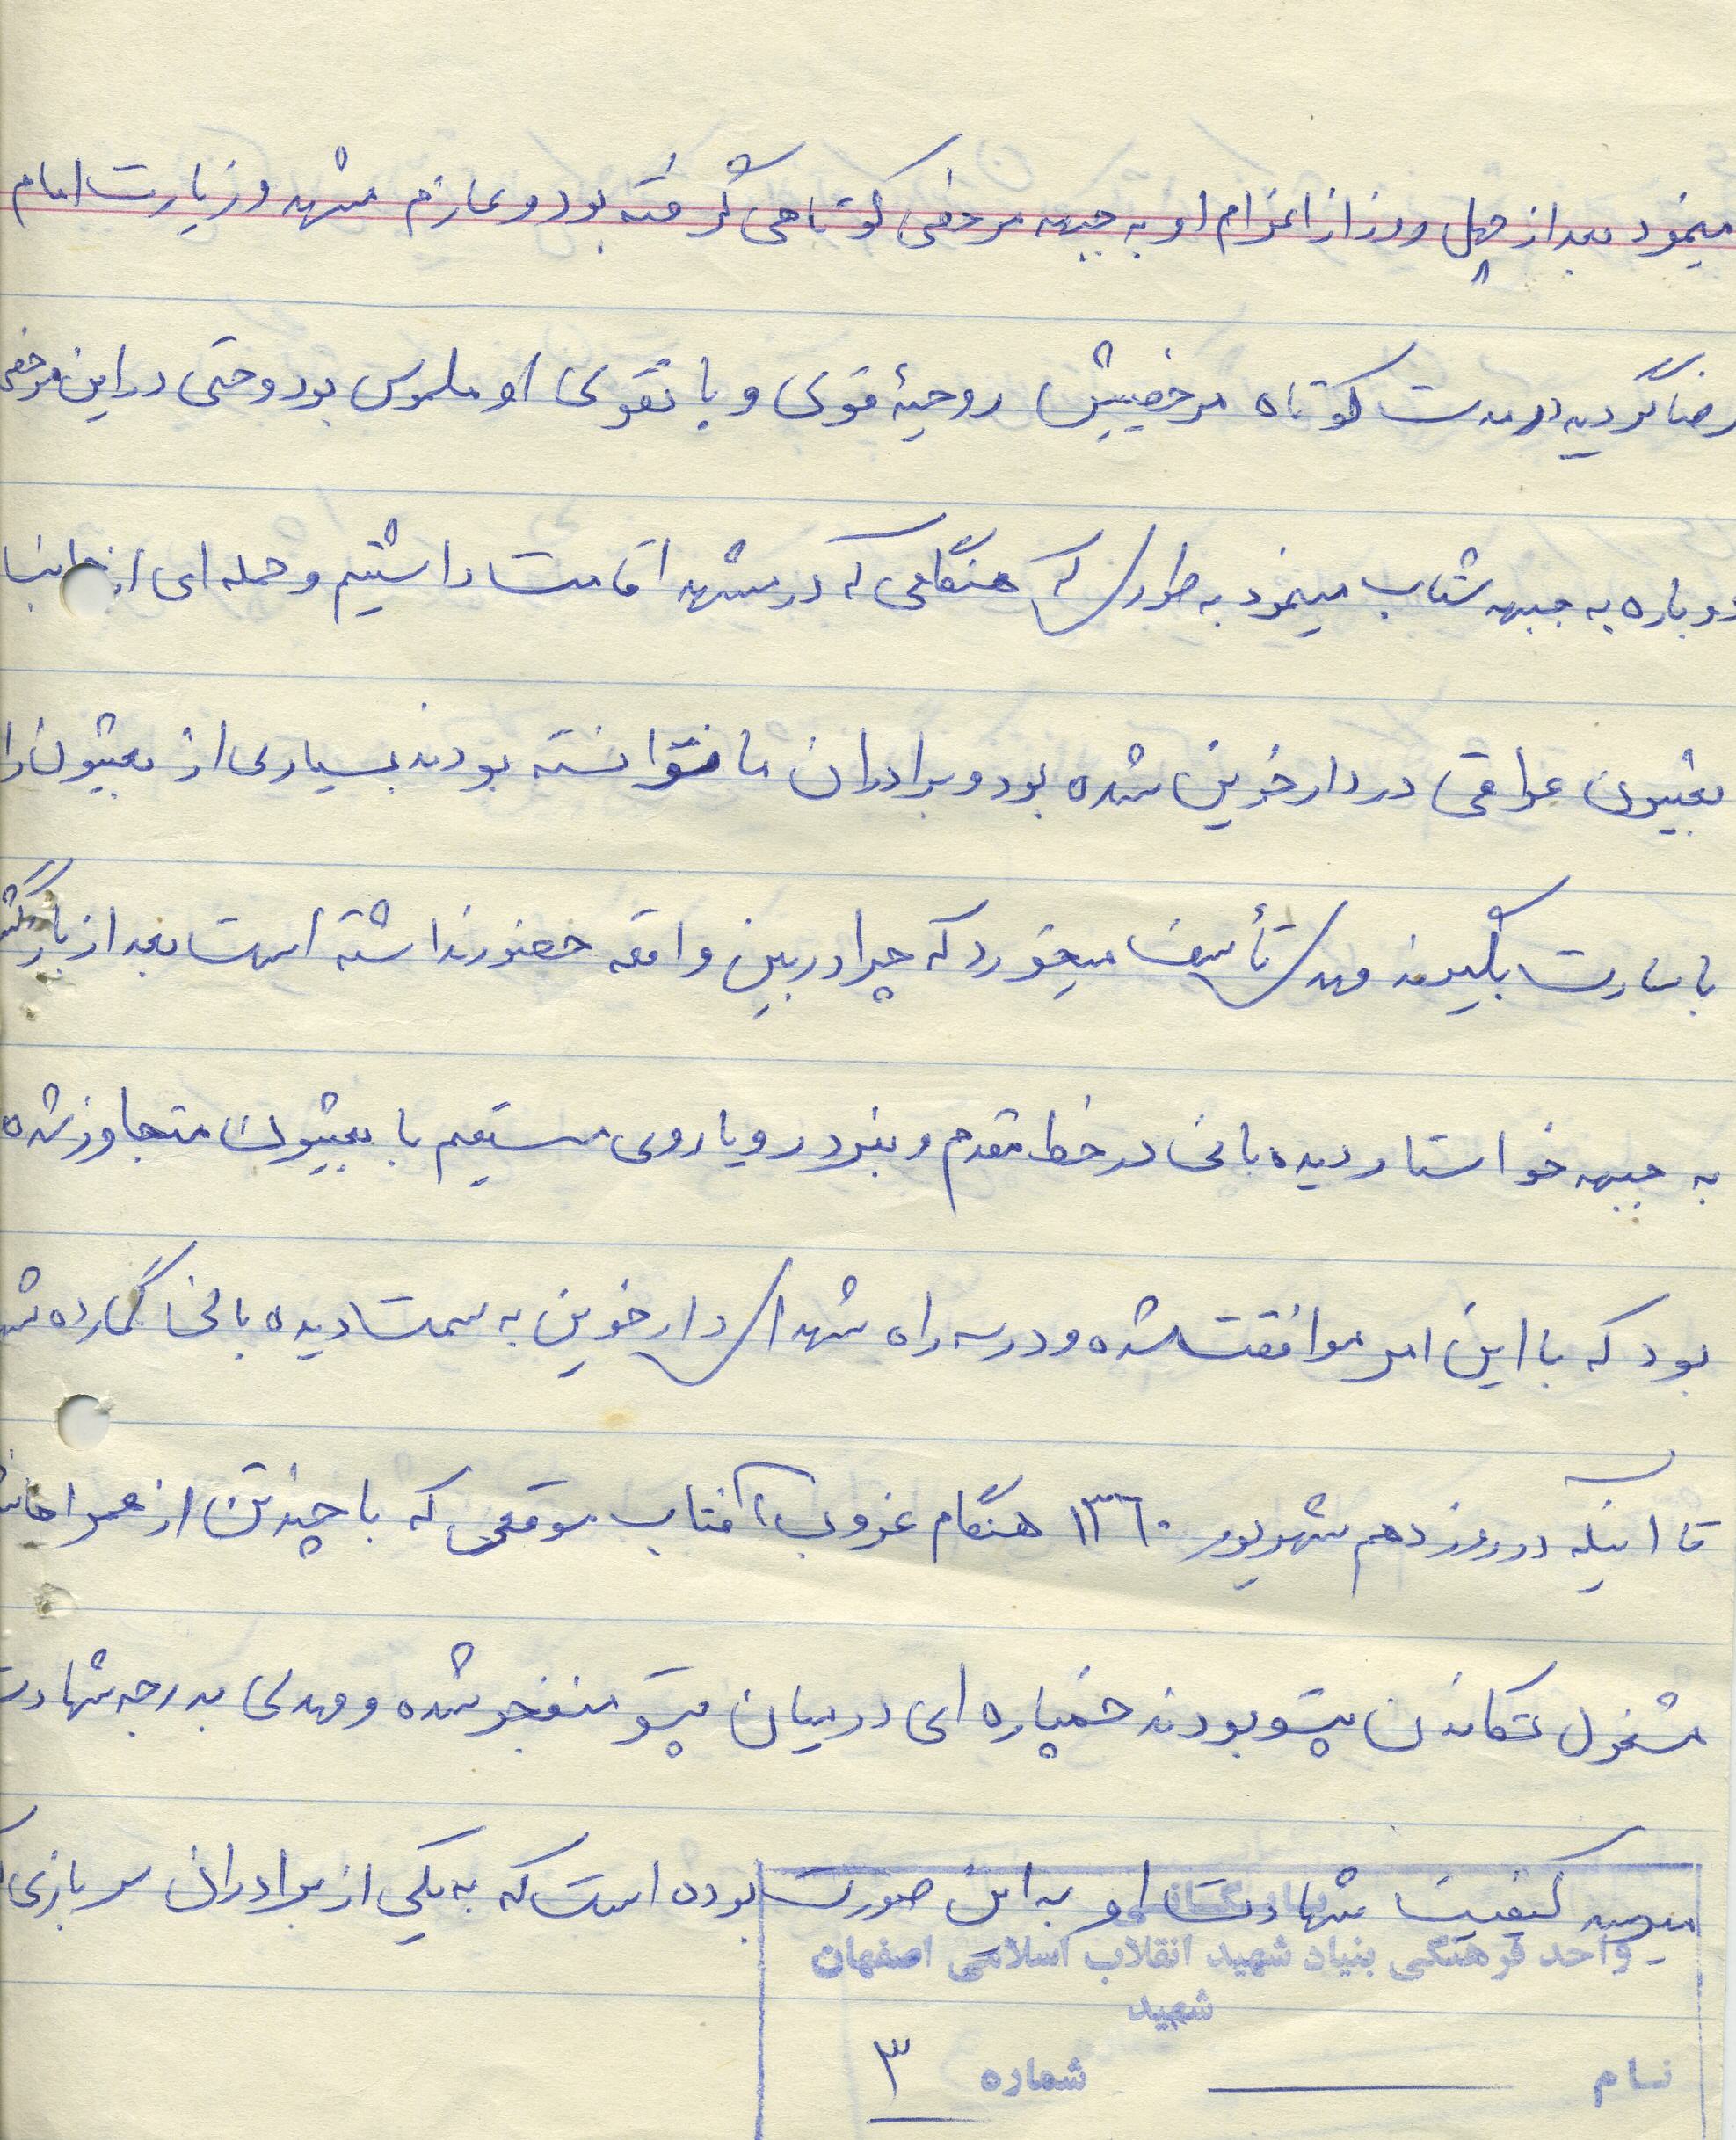 مینمود بعد از چهل روز از اعزام او به جبهه مرخصی کوتاهی گرفته بود و عازم مشهد و زیارت امام
رضا گردید در مدت کوتاه مرخصیش روحیهٔ قوی و با تقوی او ملموس بود و حتی در این مرخصی
دوباره به جبهه شتاب مینمود به طوری که هنگامی که در مشهد اقامت داشتیم و حمله ای از جانب
بعثیون عراقی در دارخوین شده بود و برادران ما توانسته بودند بسیاری از بعثیون را
با سارت بگیرند مهدی تأسف میخورد که چرا در بین واقعه حضور نداشته است بعد از بازگشت
به جبهه خواستار دیده بانی در خط مقدم و نبرد رویاروی مستقیم با بعثیون متجاوز شده
بود که با این امر موافقت شده و در سه راه شهدای دارخوین به سمت دیده بانی گمارده شد
تا اینکه در روز دهم شهریور ۱۳۶۰ هنگام غروب آفتاب موقعی که با چند تن از همراهانش
مشغول تکاندن پتو بودند خمپاره ای در میان پتو منفجر شده و مهدی به درجه شهادت
میرسد کیفیت شهادت او به این صورت بوده است که به یکی از برادران سربازی
واحد فرهنگی بنیاد شهید انقلاب اسلامی اصفهان
شهید
نام شماره ۳